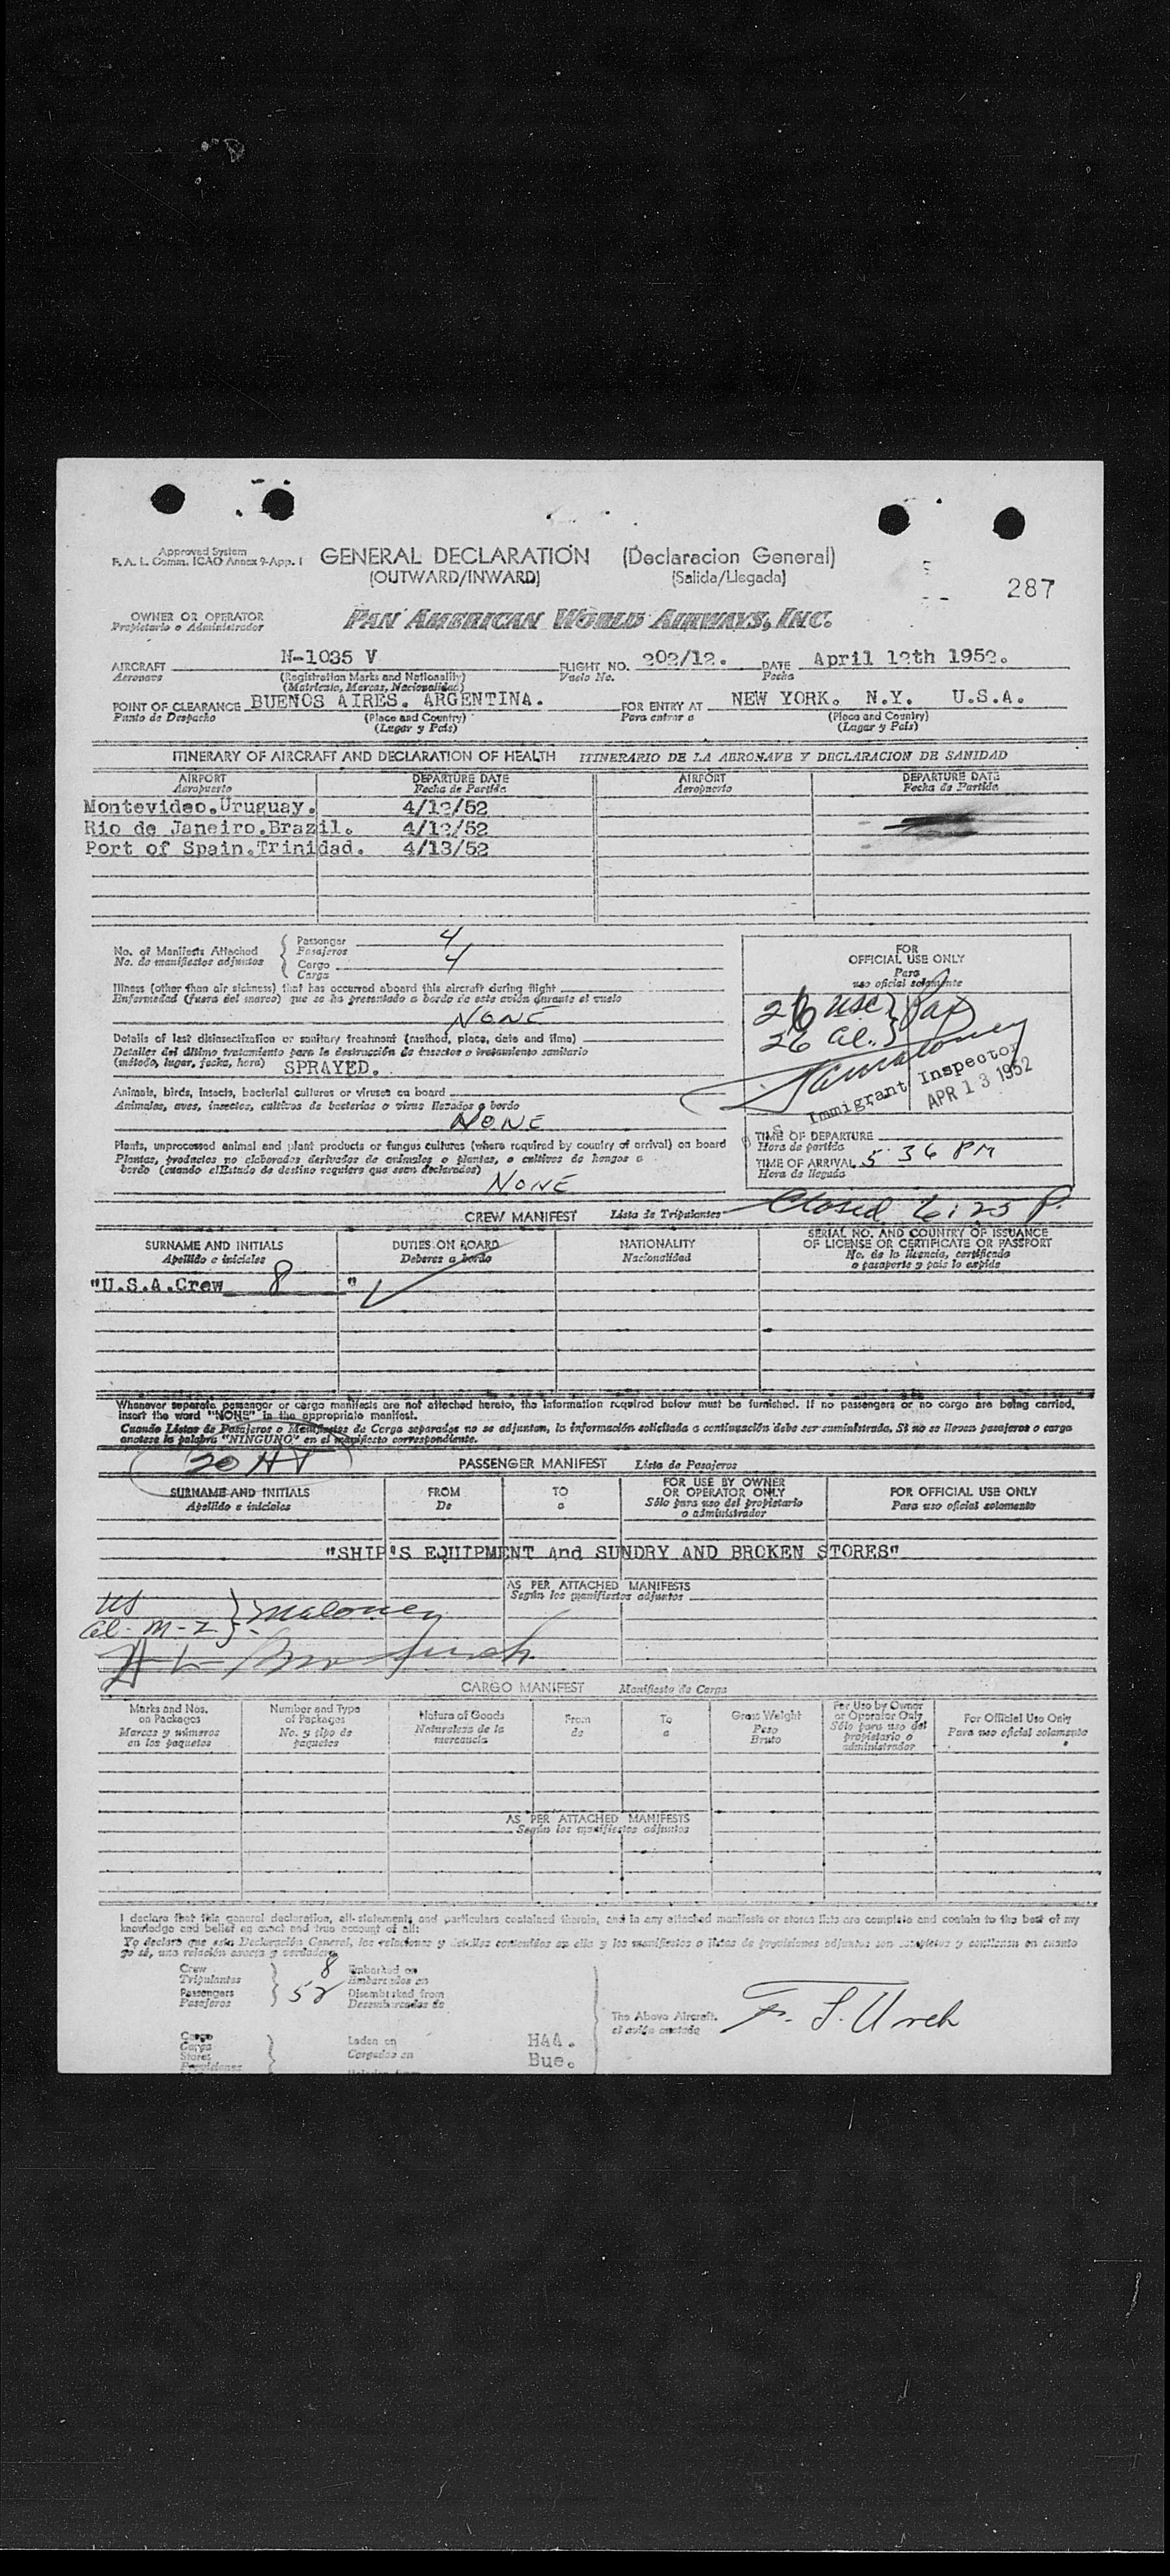 Approved System
F. A. L. Comm. ICAO Annex 9-App. 1
GENERAL DECLARATION (Declaracion General)
(OUTWARD/INWARD) (Salida/Llegada)
287
OWNER OR OPERATOR
Propietario o Administrador
PAN AMERICAN WORLD AIRWAYS, INC.
AIRCRAFT N-1035 V FLIGHT NO. 202/12. DATE April 12th 1952.
Aeronave (Registration Marks and Nationality) Vuelo No. Fecha
(Matricula, Marcas, Nacionalidad)
POINT OF CLEARANCE BUENOS AIRES. ARGENTINA. FOR ENTRY AT NEW YORK. N.Y. U.S.A.
Punto de Despacho (Place and Country) Para entrar a (Place and Country)
(Lugar y Pais) (Lugar y Pais)
ITINERARY OF AIRCRAFT AND DECLARATION OF HEALTH ITINERARIO DE LA AERONAVE Y DECLARACION DE SANIDAD
AIRPORT DEPARTURE DATE AIRPORT DEPARTURE DATE
Aeropuerto Fecha de Partida Aeropuerto Fecha de Partida
Montevideo.Uruguay. 4/12/52
Rio de Janeiro.Brazil. 4/12/52
Port of Spain.Trinidad. 4/13/52
No. of Manifests Attached
No. de manifiestos adjuntos
Passenger 4
Pasajeros
Cargo 4
Carga
Illness (other than air sickness) that has occurred aboard this aircraft during flight
Enfermedad (fuera del mareo) que se ha presentado a bordo de este avión durante el vuelo
NONE
Details of last disinsectization or sanitary treatment (method, place, date and time)
Detalles del último tratamiento para la destrucción de insectos o tratamiento sanitario
(método, lugar, fecha, hora) SPRAYED.
Animals, birds, insects, bacterial cultures or viruses on board
Animales, aves, insectos, cultivos de bacterias o virus llevados a bordo
NONE
Plants, unprocessed animal and plant products or fungus cultures (where required by country of arrival) on board
Plantas, productos no elaborados derivados de animales o plantas, o cultivos de hongos a
bordo (cuando el Estado de destino requiere que sean declarados)
NONE
FOR
OFFICIAL USE ONLY
Para
uso oficial solamente
26 USC } Pax
26 al. }
Immigrant Inspector
APR 13 1952
TIME OF DEPARTURE
Hora de partida
TIME OF ARRIVAL 5 36 PM
Hora de llegada
Closed 6:25 P.
CREW MANIFEST Lista de Tripulantes
SURNAME AND INITIALS DUTIES ON BOARD NATIONALITY SERIAL NO. AND COUNTRY OF ISSUANCE
OF LICENSE OR CERTIFICATE OR PASSPORT
Apellido e iniciales Deberes a bordo Nacionalidad No. de la licencia, certificado
o pasaporte y pais lo expide
"U.S.A.Crew 8 "
Whenever separate passenger or cargo manifests are not attached hereto, the information required below must be furnished. If no passengers or no cargo are being carried,
insert the word "NONE" in the appropriate manifest.
Cuando Listas de Pasajeros o Manifiestos de Carga separados no se adjunten, la información solicitada a continuación debe ser suministrada. Si no se lleven pasajeros o carga
anotese la palabra "NINGUNO" en el manifiesto correspondiente.
20 HT
PASSENGER MANIFEST Lista de Pasajeros
SURNAME AND INITIALS FROM TO FOR USE BY OWNER
OR OPERATOR ONLY FOR OFFICIAL USE ONLY
Apellido e iniciales De a Sólo para uso del propietario
o administrador Para uso oficial solamente
"SHIP'S EQUIPMENT And SUNDRY AND BROKEN STORES"
AS PER ATTACHED MANIFESTS
Según los manifiestos adjuntos
US
al. M-Z } Maloney
CARGO MANIFEST Manifiesto de Carga
Marks and Nos.
on Packages
Marcas y números
en los paquetes
Number and Type
of Packages
No. y tipo de
paquetes
Nature of Goods
Naturaleza de la
mercancia
From
de
To
a
Gross Weight
Peso
Bruto
For Use by Owner
or Operator Only
Sólo para uso del
propietario o
administrador
For Official Use Only
Para uso oficial solamente
AS PER ATTACHED MANIFESTS
Según los manifiestos adjuntos
I declare that this general declaration, all statements and particulars contained therein, and in any attached manifests or stores lists are complete and contain to the best of my
knowledge and belief an exact and true account of all:
Yo declaro que esta Declaración General, las relaciones y detalles contenidos en ella y los manifiestos o listas de provisiones adjuntos son completos y contienen en cuanto
yo sé, una relación exacta y verdadera
Crew 8 Embarked on
Tripulantes Embarcados en
Passengers 52 Disembarked from
Pasajeros Desembarcados de
The Above Aircraft.
el avión anotado
F. S. Urch
Cargo Laden on HAA.
Carga Cargados en Bue.
Stores
Provisiones